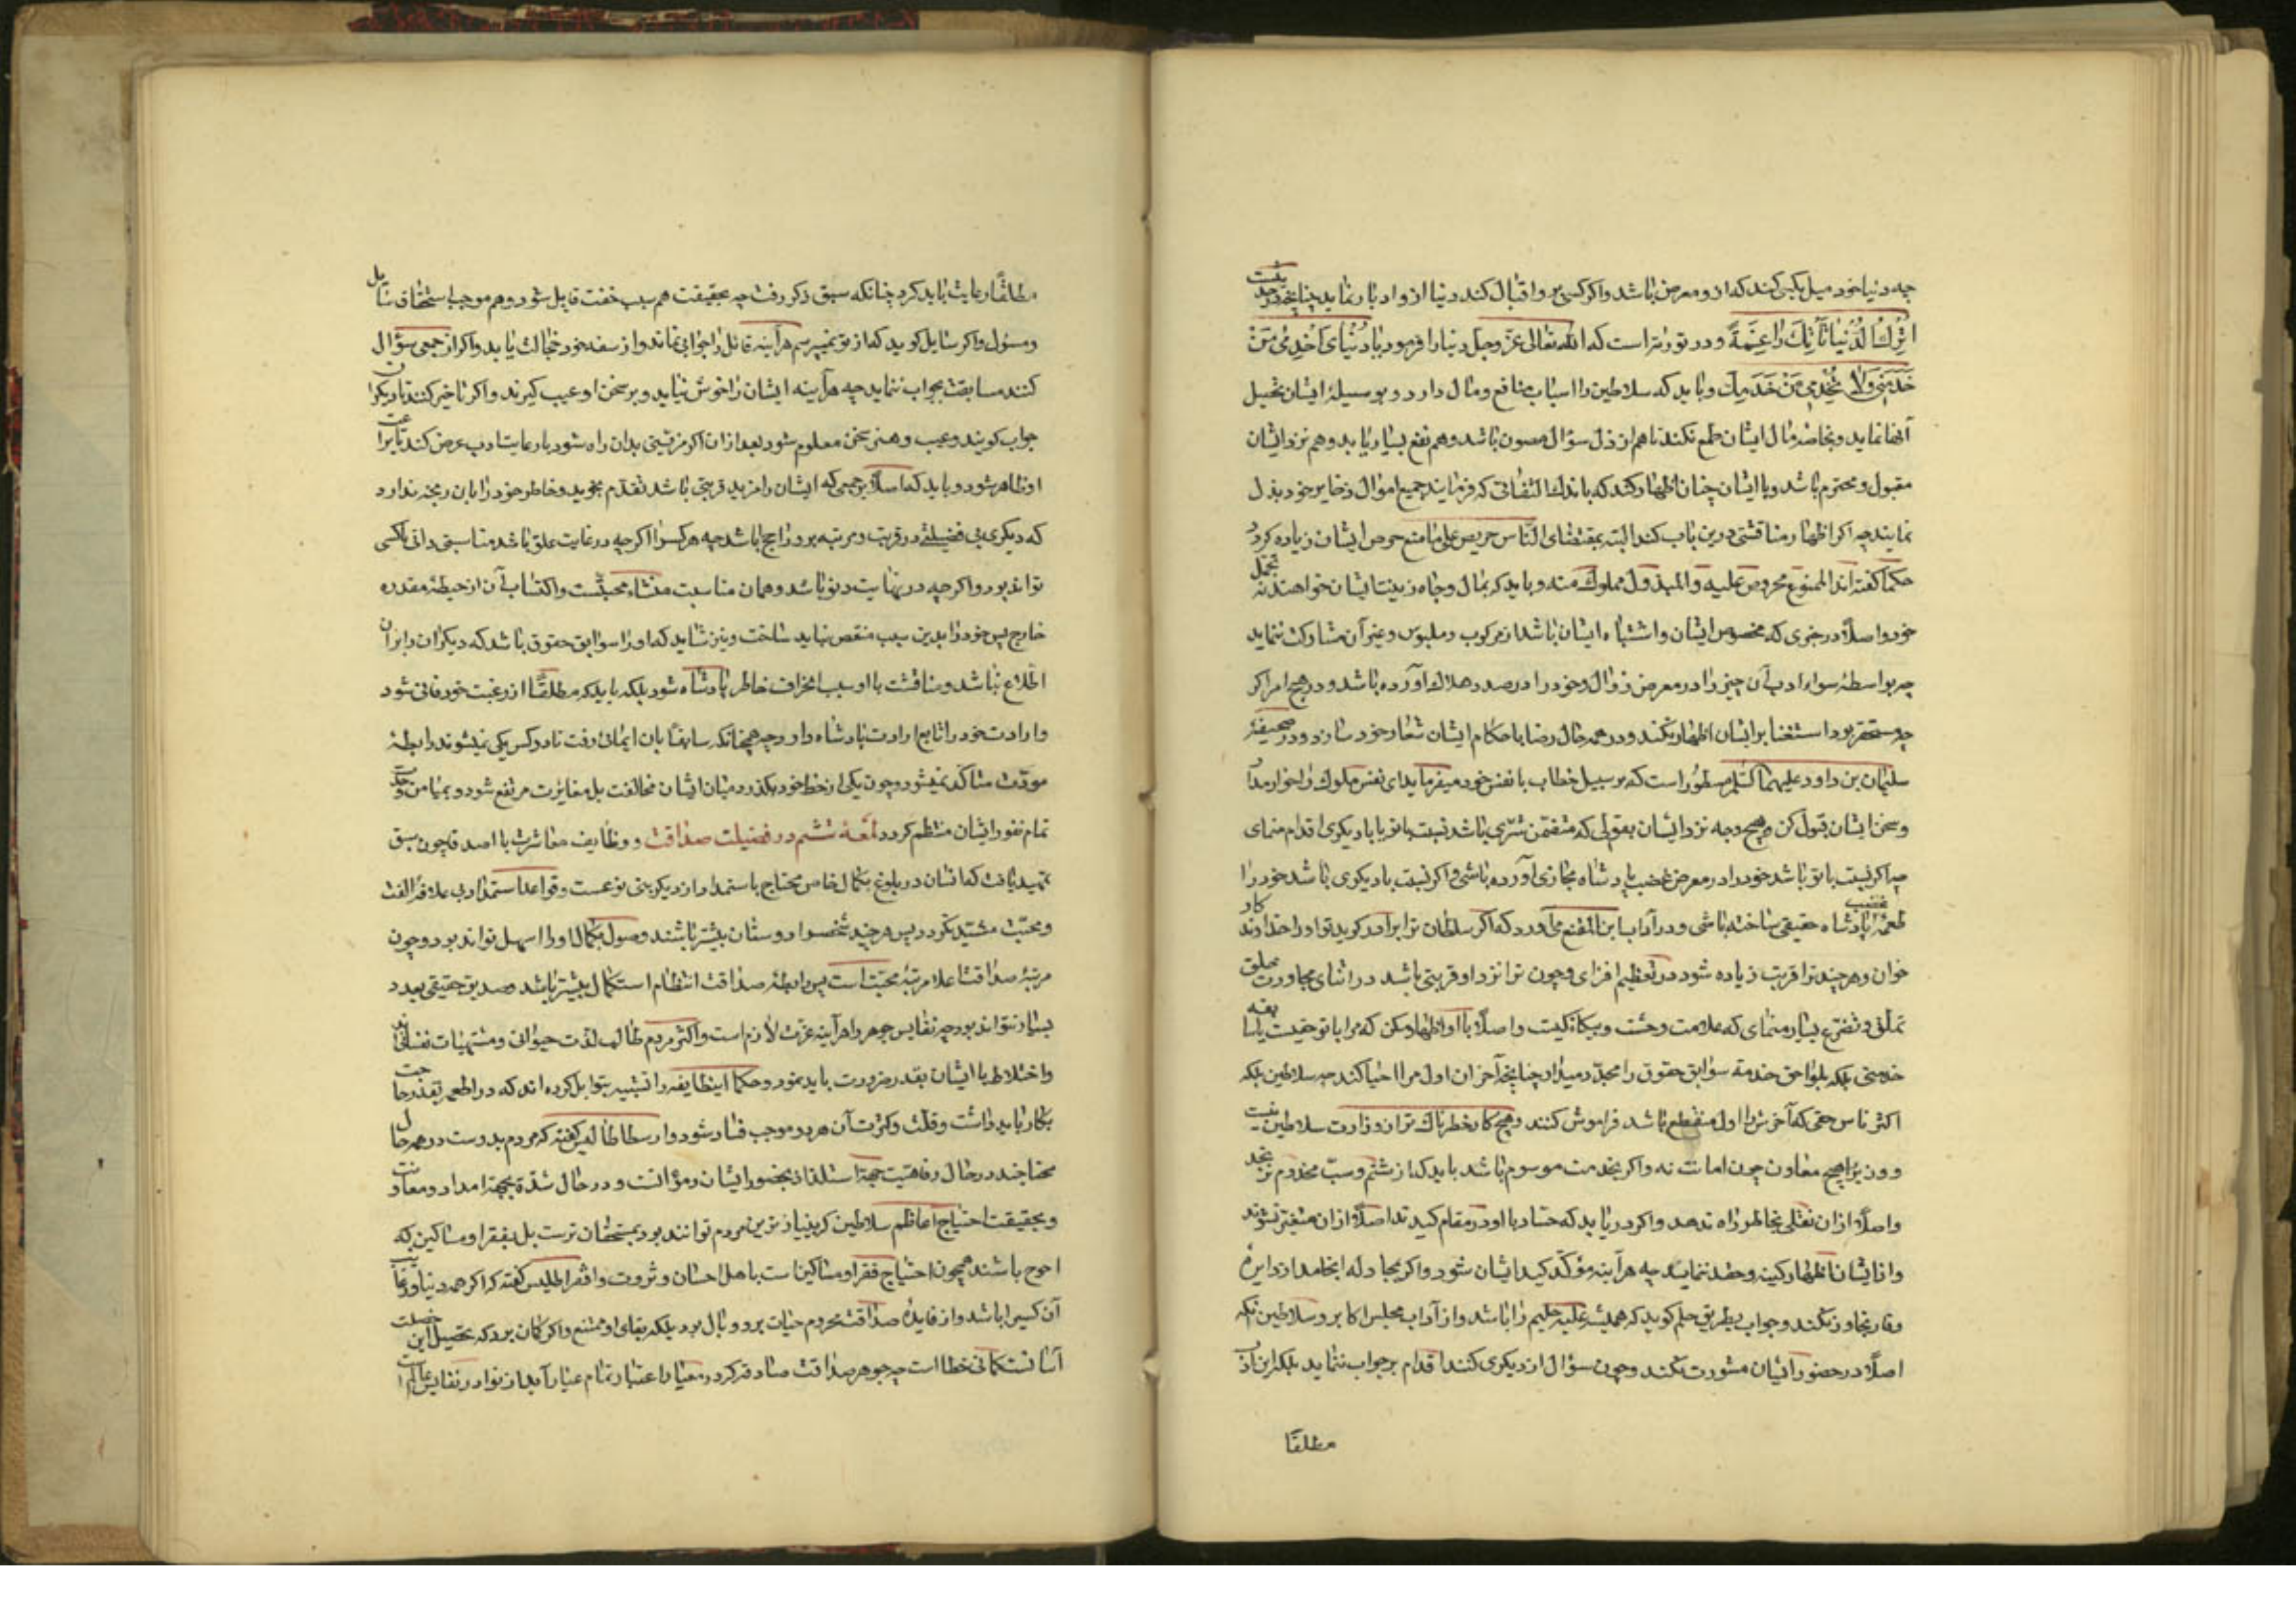 چه دنیا خود میل بکسی کند که ازو معرض باشد و اگر کسی برو اقبال کند دنیا ازو ادبار نماید چنانچه در حدیث
اُترک الدُنیا تأتیک راغِمَةً و در توریتراست که الله تعالی عزّ وجل دنیا را فرمود یا دُنیای اُخدِمی مَن
خَدَمَنی وَلا تُخدِمی مَن خَدَمَکِ و باید که سلاطین را اسباب منافع و مال دارد و بوسیلهٔ ایشان تحصیل
آنها نماید و بخاصه مال ایشان طمع نکند تا هم از ذل سؤال مصون باشد و هم نفع بسیار یابد و هم نزد ایشان
مقبول و محترم باشد و با ایشان چنان اظهار کند که باندک التفاتی که فرمایند جمیع اموال و ذخایر خود بذل
نماید چه اگر اظهار مناقشتی درین باب کند البته بمقتضای النّاس حریص علی ما منع حرص ایشان زیاده کردد
حکما گفته اند الممنوع محروص علیه والمبذول مملول منه و باید که بمال و جاه زینت ایشان خواهند نه تجمل
خود و اصلًا در چیزی که مخصوص ایشان و اشتباه ایشان باشد از مرکوب و ملبوس و غیر آن مشارکت ننماید
چه بواسطهٔ سواد ادب آن چیز را در معرض زوال و خود را در صدد هلاک آورده باشد و در هیچ امر اگر
چه مستحقر بود استغنا برایشان اظهار نکند و در همه حال رضا باحکام ایشان شعار خود سازد و در صحیفهٔ
سلیمان بن داود علیهما السلم مسطور است که بر سبیل خطاب با نفس خود میفرماید ای نفس ملوک را خوار مدار
و سخن ایشان قبول کن و هیچ وجه نزد ایشان بقولی که متضمن شری باشد نسبت با تو یا با دیکری اقدام منمای
چه اگر نسبت با تو باشد خود را در معرض غضب پادشاه مجازی آورده باشی و اگر نسبت با دیکری باشد خود را
طعمهٔ غضب پادشاه حقیقی ساخته باشی و در آداب ابن المقنع می آورد که اگر سلطان ترا برادر کوید تو او را خداوندکار
خوان و هر چند ترا قربت زیاده شود در تعظیم افزای و چون ترا نزد او قربتی باشد در اثنای محاورت تملق
تملق و تضرع بسیار منمای که علامت وحشت و بیکانکیست و اصلًا با او اظهار مکن که مرا با تو حقیست یا سابقه
خدمتی بلکه بلواحق خدمة سوابق حقوق را مجدّد میدار چنانچه آخر آن اول مرا احیا کند چه سلاطین بلکه
اکثر ناس حقی که آخرش از اول منقطع باشد فراموش کنند و هیچ کار خطرناک تر از وزارت سلاطین نیست
و وزیر را هیچ معاون چون امانت نه و اگر بخدمت موسوم باشد باید که از شتم و سبّ مخدوم نرنجد
و اصلًا ازان نقلی بخاطر راه ندهد و اگر دریابد که حسّاد با او در مقام کیدند اصلًا ازان متغیر نشوند
و با ایشان اظهار کینه و حقد ننماید چه هر آینه مؤکّد کید ایشان شود و اگر بمجادله انجامد از دایرهٔ
وقار تجاوز نکند و جواب بطریق حلم کوید که همیشه غلبه حلیم را باشد و از آداب مجلس اکابر و سلاطین آنکه
اصلًا در حضور ایشان مشورت نکند و چون سؤال از دیکری کنند اقدام بر جواب ننماید بلکه این ادب
مطلقًا
مطلقًا رعایت باید کرد چنانکه سبق ذکر رفت چه بحقیقت هم سبب خفت قایل شود و هم موجب استخفاف سایل
و مسئول و اگر سایل کوید که از تو نمیپرسم هر آینه قائل را جوابی نماند و از سفه خود خجالت یابد و اگر از جمعی سؤال
کنند مسابقت بجواب ننماید چه هر آینه ایشان را خوش نیاید و بر سخن او عیب کیرند و اگر تاخیر کند تا دیکران
جواب کویند و عیب و هنر سخن معلوم شود بعد ازان اگر مزیتی بدان راه شود با رعایت ادب عرض کند تا براعت
او ظاهر شود و باید که اصلًا بر جمعی که ایشان را مزید قربتی باشد تقدّم نجوید و خاطر خود را بان رنجه ندارد
که دیکری بی فضیلتی در قربت و مرتبه برو راجح باشد چه هر کس را اگر چه در غایت علوّ باشد مناسبتی ذاتی با کسی
تواند بود و اگر چه در نهایت دنو باشد و همان مناسبت منشاء محبتست و اکتساب آن از حیطهٔ مقدره
خارج پس خود را بدین سبب منقص نباید ساخت و نیز شاید که او را سوابق حقوق باشد که دیکران را بران
اطلاع نباشد و مناقشت با او سبب انحراف خاطر پادشاه شود بلکه باید که مطلقًا از رغبت خود فانی شود
و ارادت خود را تابع ارادت پادشاه دارد چه همچنانکه سابقًا بان ایمائی رفت تا دو کس یکی نمیشوند رابطهٔ
مودّت متاکّد نمیشود و چون یکی از حظ خود بکذرد میان ایشان مخالفت بل مغایرت مرتفع شود و بمیامن وحدت
تمام نفور ایشان منتظم کردد لمعهٔ ششم در فضیلت صداقت و وظایف معاشرت با اصدقا چون سبق
تمهید یافت که انسان در بلوغ بکمال خاص محتاج باستمداد از دیکر بنی نوعست و قواعد استمداد بی علاقهٔ الفت
و محبّت مشتید نکردد پس هر چند شخص را دوستان بیشتر باشند وصول بکمال او را اسهل تواند بود و چون
مرتبهٔ صداقت اعلا مرتبهٔ محبّت است پس رابطهٔ صداقت انتظام استکمال بیشتر باشد و صدیق حقیقی بعدد
بسیار نتواند بود چه نفایس جوهر را هر آینه عزت لازم است و اکثر مردم طالب لذّت حیوانی و مشتهیات نفسانی اند
و اختلاط با ایشان بقدر ضرورت باید نمود و حکما اینطایفه را تشبیه بتوابل کرده اند که در اطعمه بقدر حاجت
بکار باید داشت و قلّت و کثرت آن هر دو موجب فساد شود و ارسطاطالیس کفته که مردم بدوست در همه حال
محتاجند در حال رفاهیّت جهة استلذاذ بحضور ایشان و مؤانست و در حال شدّة بجهة امداد و معاونت
و بحقیقت احتیاج اعاظم سلاطین که بینیازترین مردم توانند بود بمستحقان تربیت بل بفقرا و مساکین که
احوج باشند همچون احتیاج فقرا و مساکین است باهل احسان و ثروت و افقراطلیس کفته که اگر همه دنیا و رغایب
آن کسی را باشد و از فایدهٔ صداقت محروم حیات برو وبال بود بلکه بقای او ممتنع و اگر کمان برد که تحصیل این خصلت
آسانست کمانی خطا است چه جوهر صداقت صادقه که در معیار اعتبار تمام عیار آید از نوادر نفایس عالم است